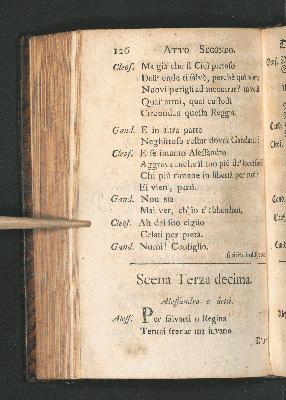 126 ATTO SECONDO.
Cleof. Ma già che il Ciel pietoso
Dall' onde ti salvò, perchè quì vieni
Nuovi perigli ad incontrar?
Quai armi, quai custodi
Circondan questa Reggia.
Gand. E in altra parte
Neghittoso restar dovrà Gandarte?
Cleof. E se intanto Alessandro
Aggrava anche il tuo piè
Chi più rimane in libertà per noi?
Ei vien, parti.
Gand. Non sia
Mai ver, ch'io t'abbandoni,
Cleof. Ah dal suo ciglio
Celati per pietà.
Gand. Numi! Consiglio.
Scena Terza decima.
Alessandro e detti.
Aless. Per salvarti o Regina
Tentai frenar ma invano